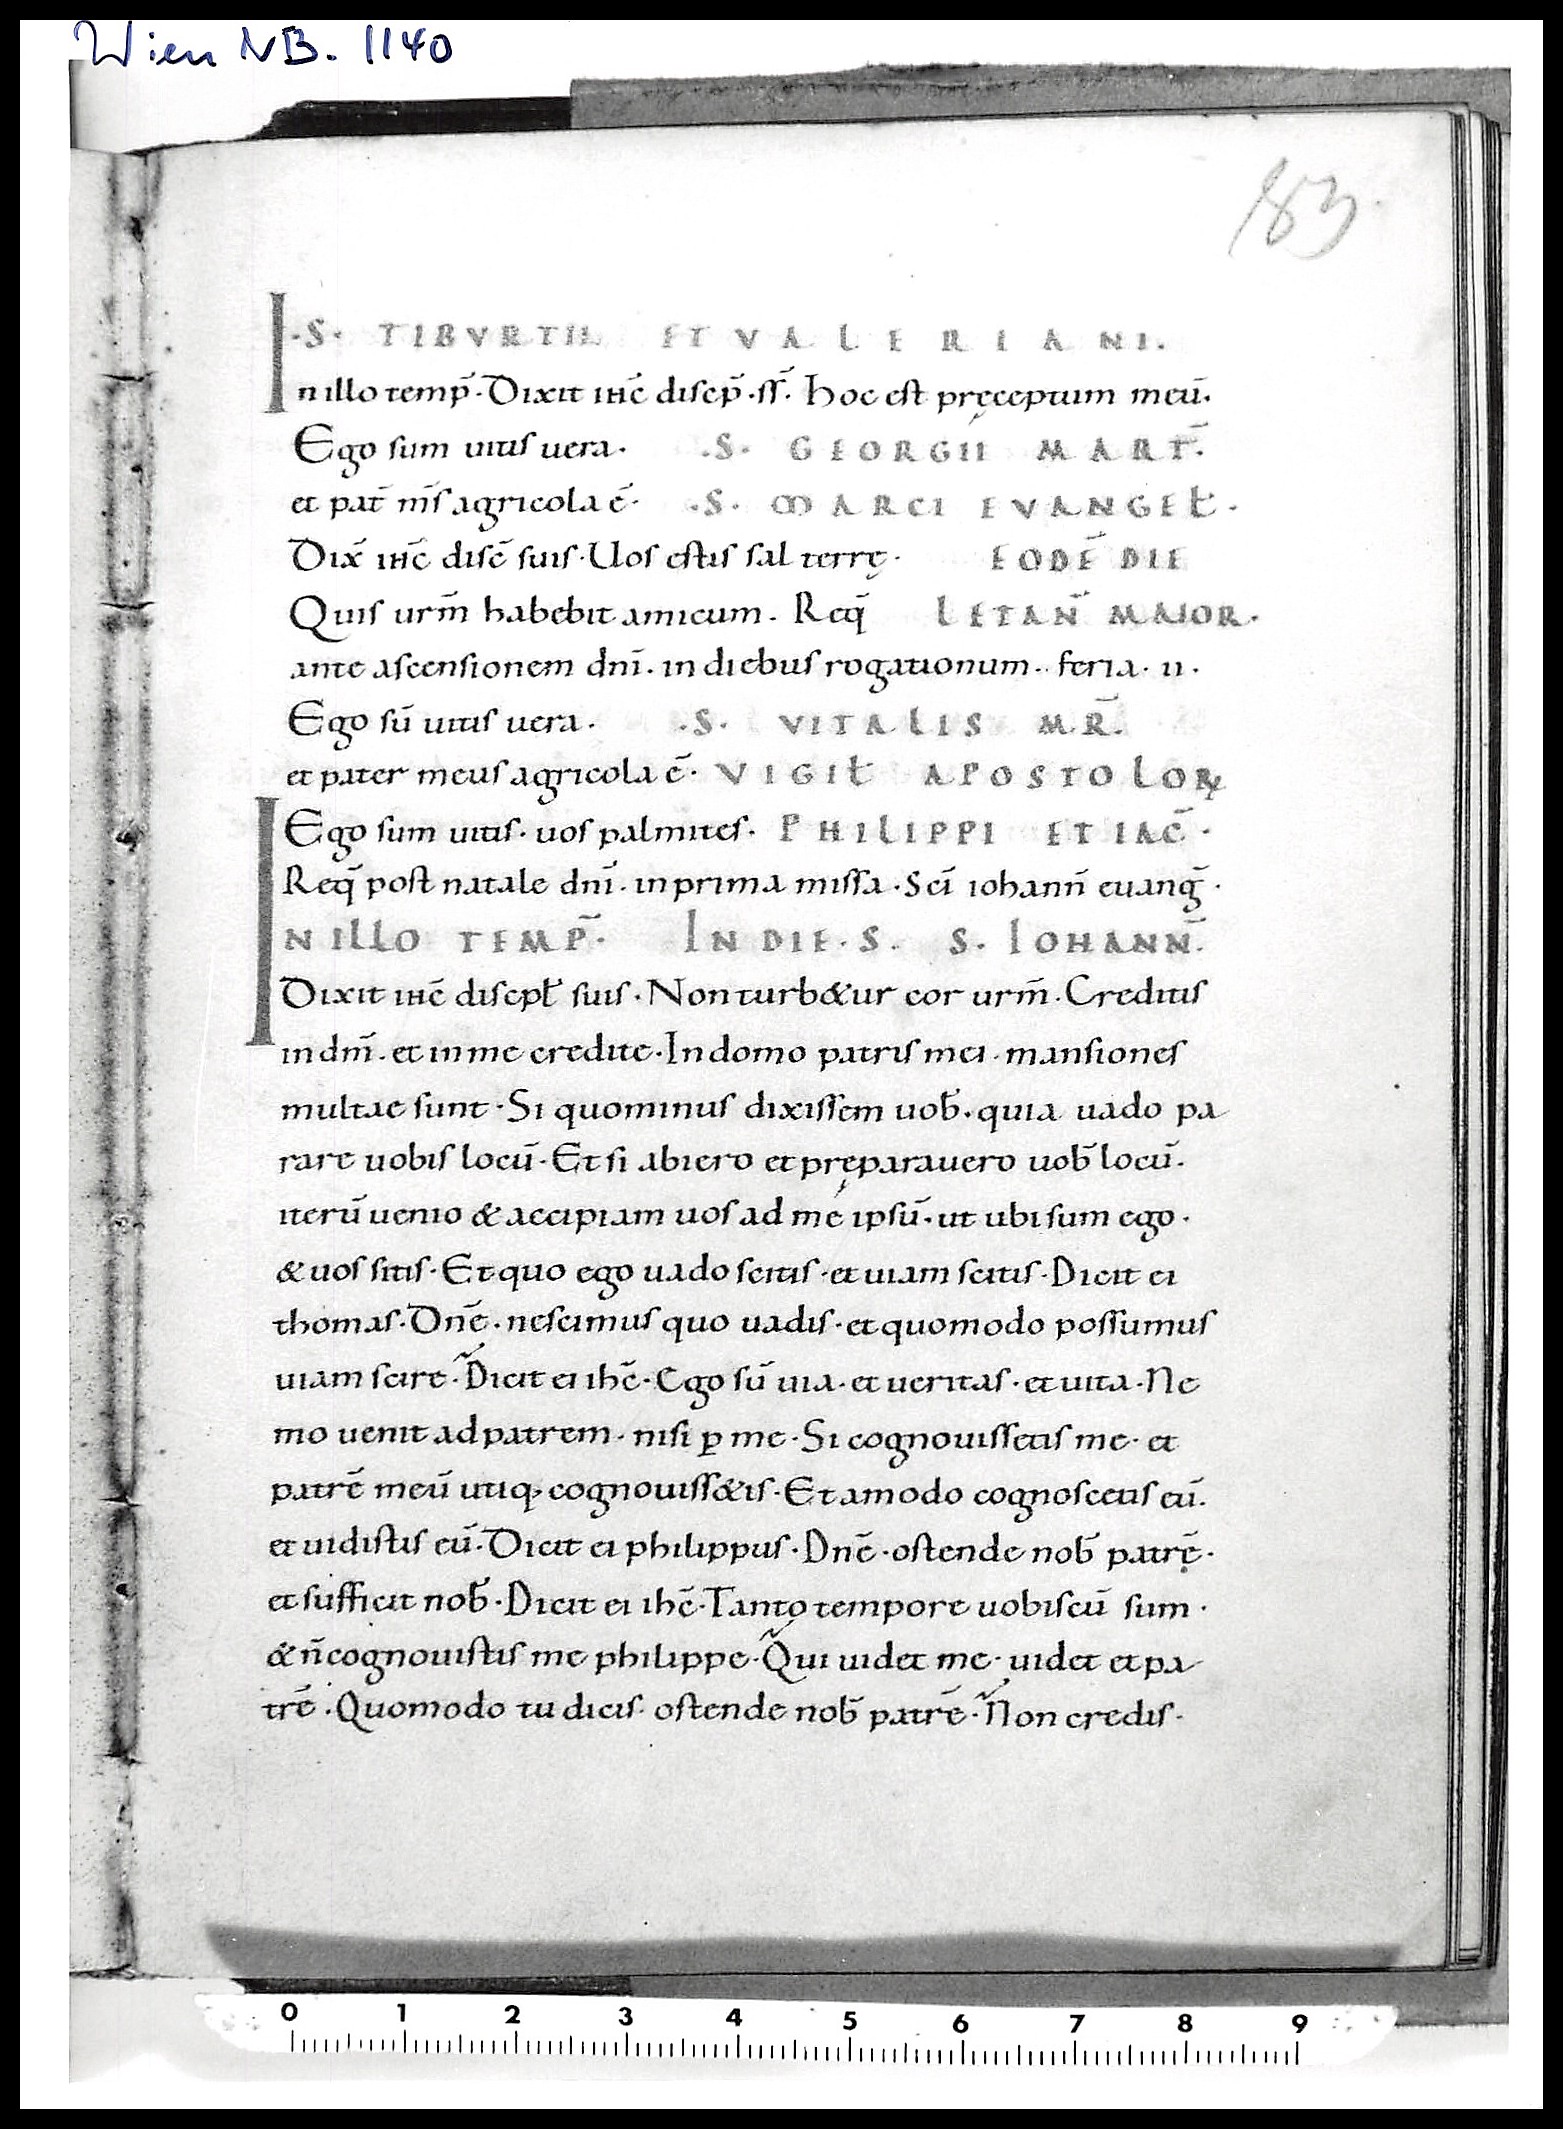 Wien NB. 1140
183
·S· TIBVRTII ET VALERIANI.
Inillo temp̄·Dixit ihc̄ discp̄·ss̄· hoc est pręceptum meū.
Ego sum uitis uera· ·S· GEORGII MART̄·
et pat̄ m̄s agricola ē· ·S· MARCI EVANGEƚ·
Dix̄ ihc̄ disc̄ suis·Uos estis sal terrę· EODĒ DIE
Quis urm̄ habebit amicum. Req̄ LETAN̄ MAIOR·
ante ascensionem dnī·in diebus rogationum·feria·ii·
Ego sū uitis uera· ·S· VITALIS M.R̄.
et pater meus agricola ē· VIGIƚ APOSTOLOꝜ
Ego sum uitis·uos palmites· PHILIPPI ET IAC̄·
Req̄ post natale dnī·inprima missa·Scī iohann̄ euanḡ·
IN ILLO TEMP̄· IN DIE·S. S. IOHANN̄.
Dixit ihc̄ discpƚ suis·Non turb&ur cor urm̄·Creditis
in dm̄·et inme credite·In domo patris mei·mansiones
multae sunt·Si quominus dixissem uob̄·quia uado pa
rare uobis locū·Et si abiero et pręparauero uob̄ locū.
iterū uenio & accipiam uos ad me ipsū·ut ubi sum ego·
& uos sitis·Et quo ego uado scitis·et uiam scitis·Dicit ei
thomas·Dnē·nescimus quo uadis·et quomodo possumus
uiam scire·Dicit ei ihc̄·Ego sū uia·et ueritas·et uita·Ne
mo uenit ad patrem·nisi ꝑ me·Si cognouissetis me·et
patrē meū utiq; cognouiss&is·Et amodo cognoscetis eū.
et uidistis eū·Dicit ei philippus·Dnē·ostende nob̄ patrē·
et sufficit nob̄·Dicit ei ihc̄·Tanto tempore uobiscū sum·
& n̄ cognouistis me philippe·Qui uidet me·uidet et pa
trē·Quomodo tu dicis·ostende nob̄ patrē·Non credis·
0 1 2 3 4 5 6 7 8 9